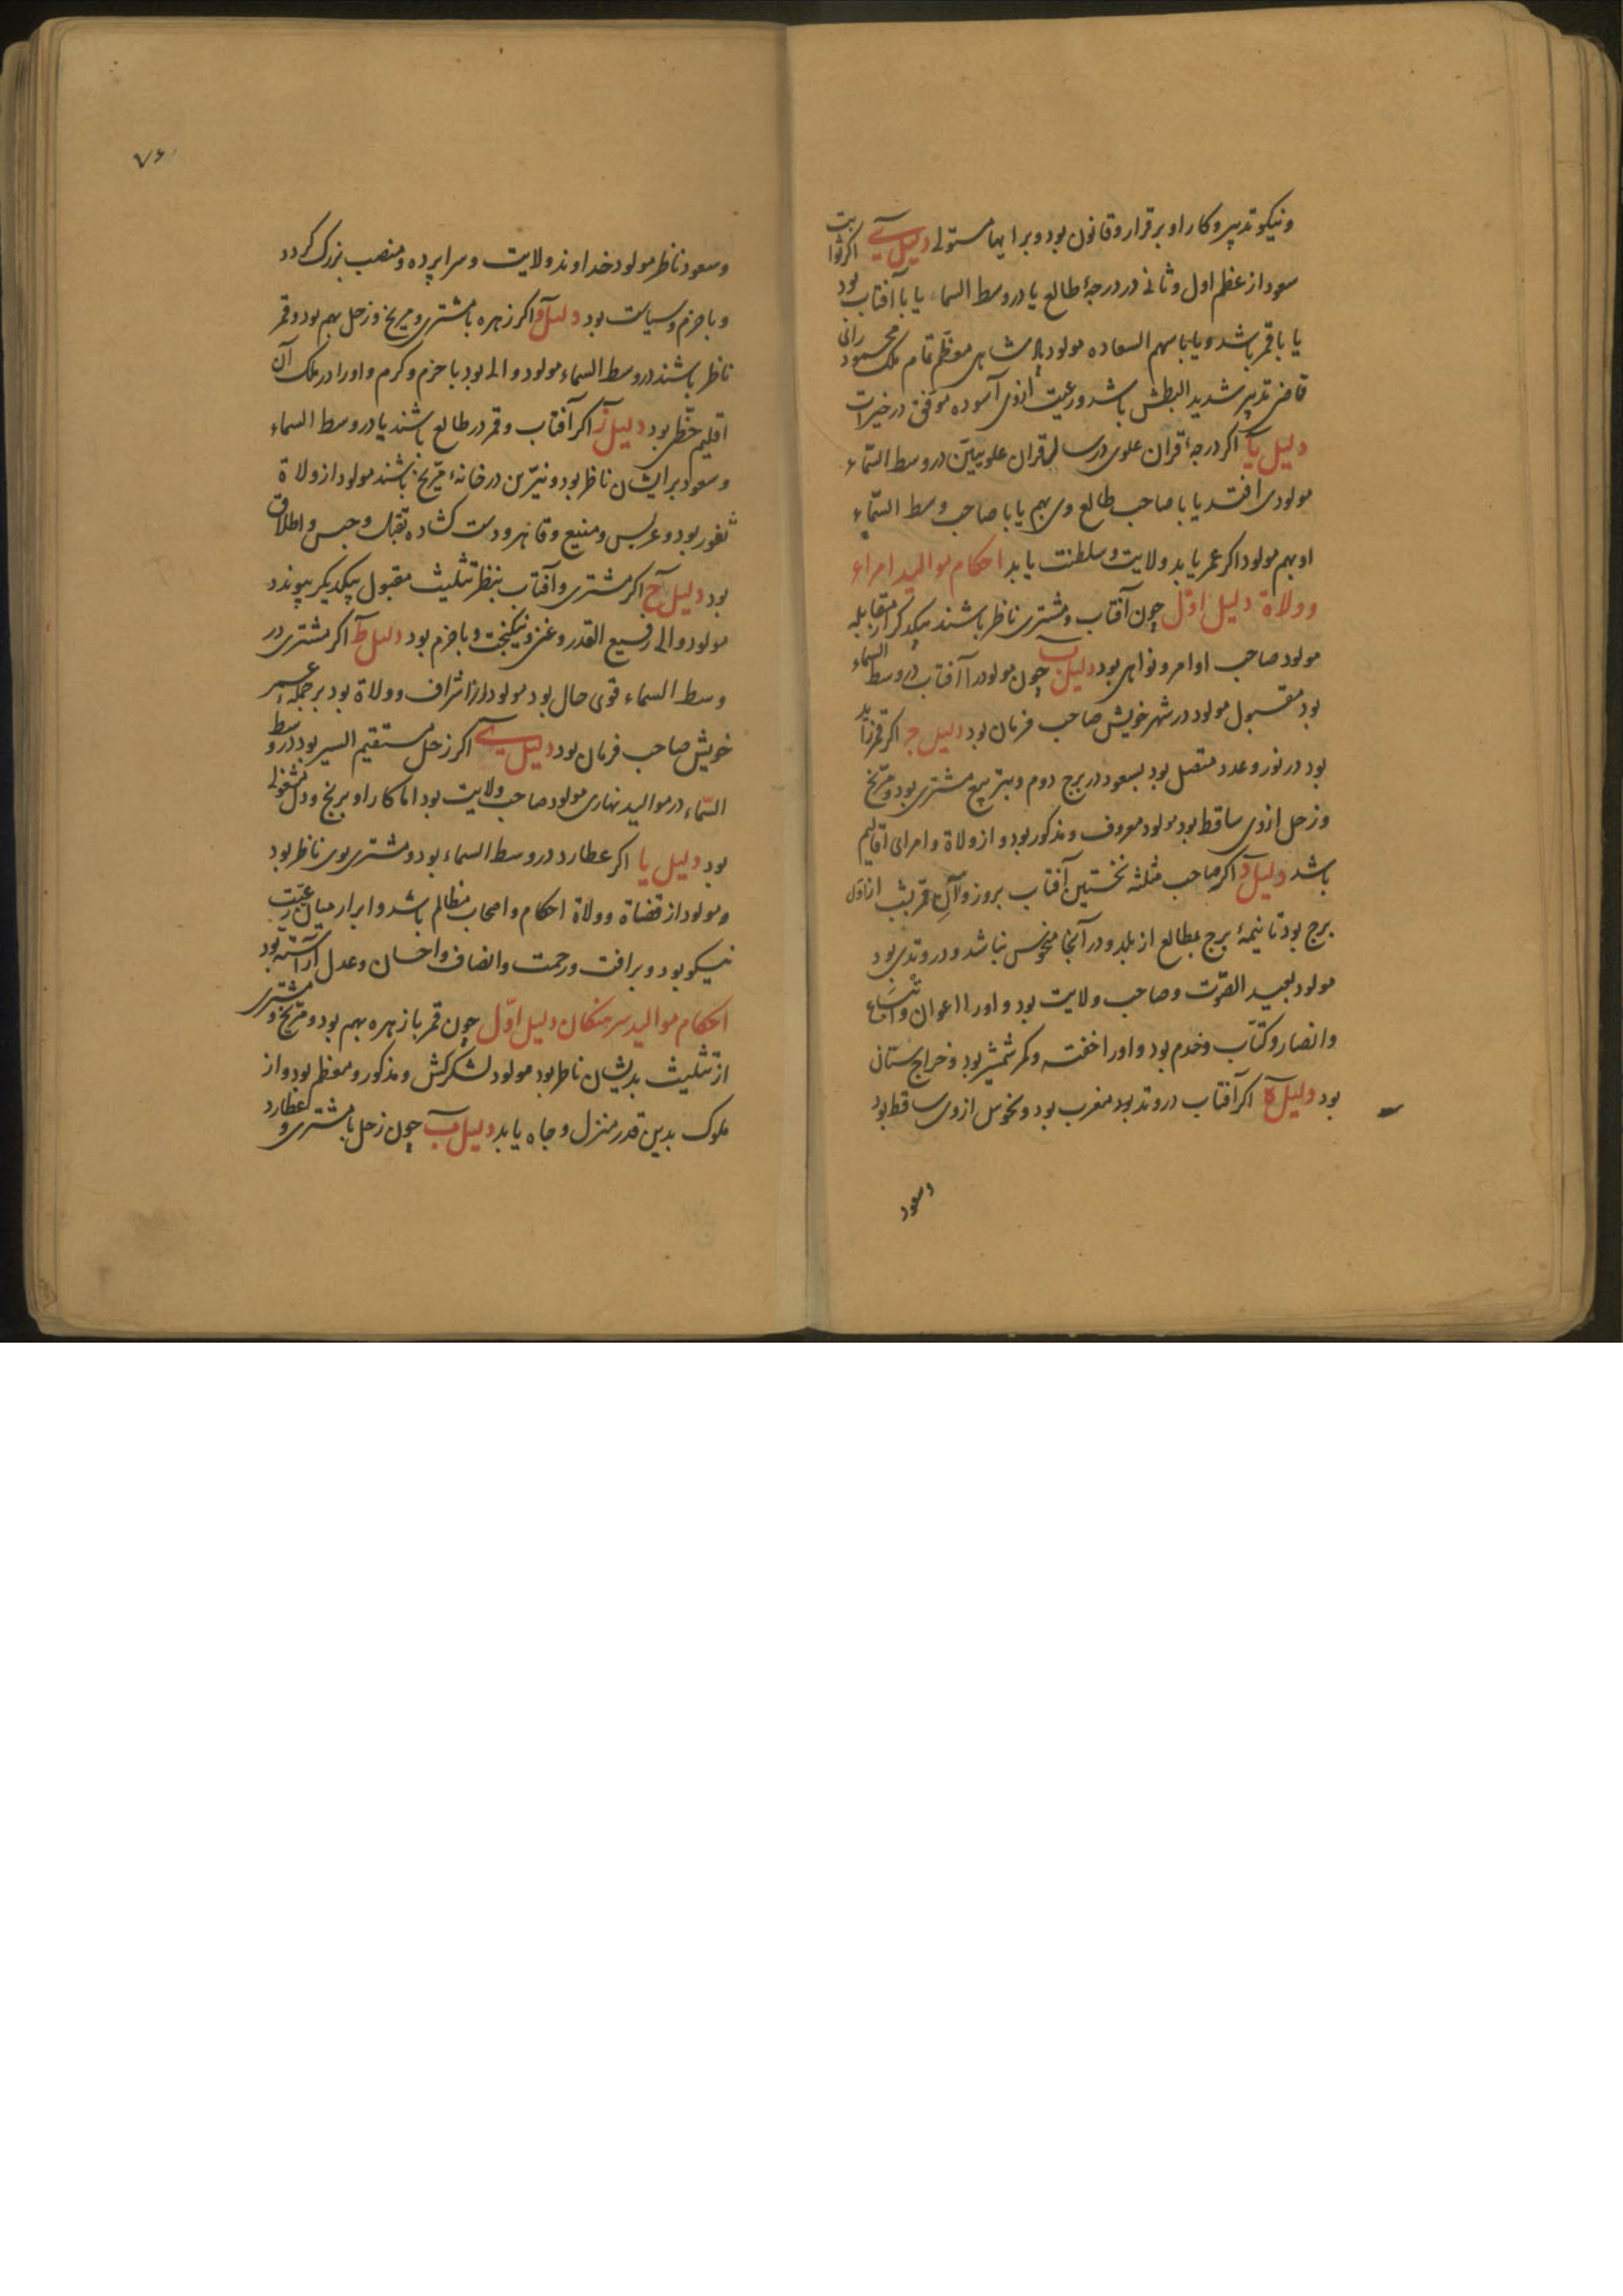 ونیکو تدبیر و کار او برقرار و قانون بود و بر ایها مستولی دلیل ی اکر ثوابت
سعود از عظم اول و ثانی در درجهٔ طالع یا در وسط السماء یا با آفتاب بود
یا با قمر باشد و یا با سهم السعاده مولود پادشاهی معظم تمام ملک محمود رای
قاضی تدبیر شدید البطش باشد و رعیت ازوی آسوده موفق در خیرات
دلیل یآ اکر درجهٔ قران علوی در سال قران علویین در وسط السّماء
مولودی افتد یا با صاحب طالع وی بهم یا با صاحب وسط السّماء
او بهم مولود اکر عمر یابد ولایت و سلطنت یابد احکام موالید امراء
وولاة دلیل اوّل چون آفتاب و مشتری ناظر باشند بیکدیکر از مقابله
مولود صاحب اوامر و نواهی بود دلیل ب چون مولود را آفتاب در وسط السماء
بود مقبول مولود در شهر خویش صاحب فرمان بود دلیل ج اکر قمر زاید
بود در نور و عدد متصل بود بسعود در برج دوم و بتربیع مشتری بود و مرّیخ
و زحل ازوی ساقط بود مولود معروف و مذکور بود و از ولاة و امرای اقالیم
باشد دلیل د اکر صاحب مثلثه نخستین آفتاب بروز و آنِ قمر بشب از اوّل
برج بود تا نیمهٔ برج بمطالع از بلد و در آنجا منحوس نباشد و در وتدی بود
مولود بعید الصوت و صاحب ولایت بود و او را اعوان و اتباع
و انصار و کتّاب و خدم بود و او را خفته و کمر شمشیر بود و خراج ستان
بود دلیل ه اکر آفتاب در وتد بود مغرب بود و نحوس ازوی ساقط بود
وسعود
۷۶
وسعود ناظر مولود خداوند ولایت و سراپرده و منصب بزرک کردد
و با حزم و سیاست بود دلیل و اکر زهره با مشتری و مریخ و زحل بهم بود و قمر
ناظر باشند در وسط السماء مولود والی بود با حزم و کرم و او را در ملک آن
اقلیم حظّی بود دلیل ز اکر آفتاب و قمر در طالع باشند یا در وسط السماء
و سعود بر ایشان ناظر بود و نیّرین در خانهٔ مرّیخ باشند مولود از ولاة
ثغور بود و منیع و قاهر و دست کشاده بقتل و حبس و اطلاق
بود دلیل ح اکر مشتری و آفتاب بنظر تثلیث مقبول بیکدیکر پیوندد
مولود والی رفیع القدر و غنی و نیکبخت و با حزم بود دلیل ط اکر مشتری در
وسط السماء قوی حال بود مولود از اشراف و ولاة بود بر جملهٔ
خویش صاحب فرمان بود دلیل ی اکر زحل مستقیم السیر بود در وسط
السّماء در موالید نهاری مولود صاحب ولایت بود اما کار او برنج و دل مشغولی
بود دلیل یا اکر عطارد در وسط السماء بود و مشتری بوی ناظر بود
مولود از قضاة و ولاة احکام و اصحاب مظالم باشد و ابرار میان رعیّت
نیکو بود و برافت و رحمت و انصاف و احسان و عدل آراسته بود
احکام موالید سرهنکان دلیل اوّل چون قمر با زهره بهم بود و مرّیخ و مشتری
از تثلیث بدیشان ناظر بود مولود لشکرکش و مذکور و معظم بود و از
ملوک بدین قدر منزل و جاه یابد دلیل ب چون زحل با مشتری و عطارد